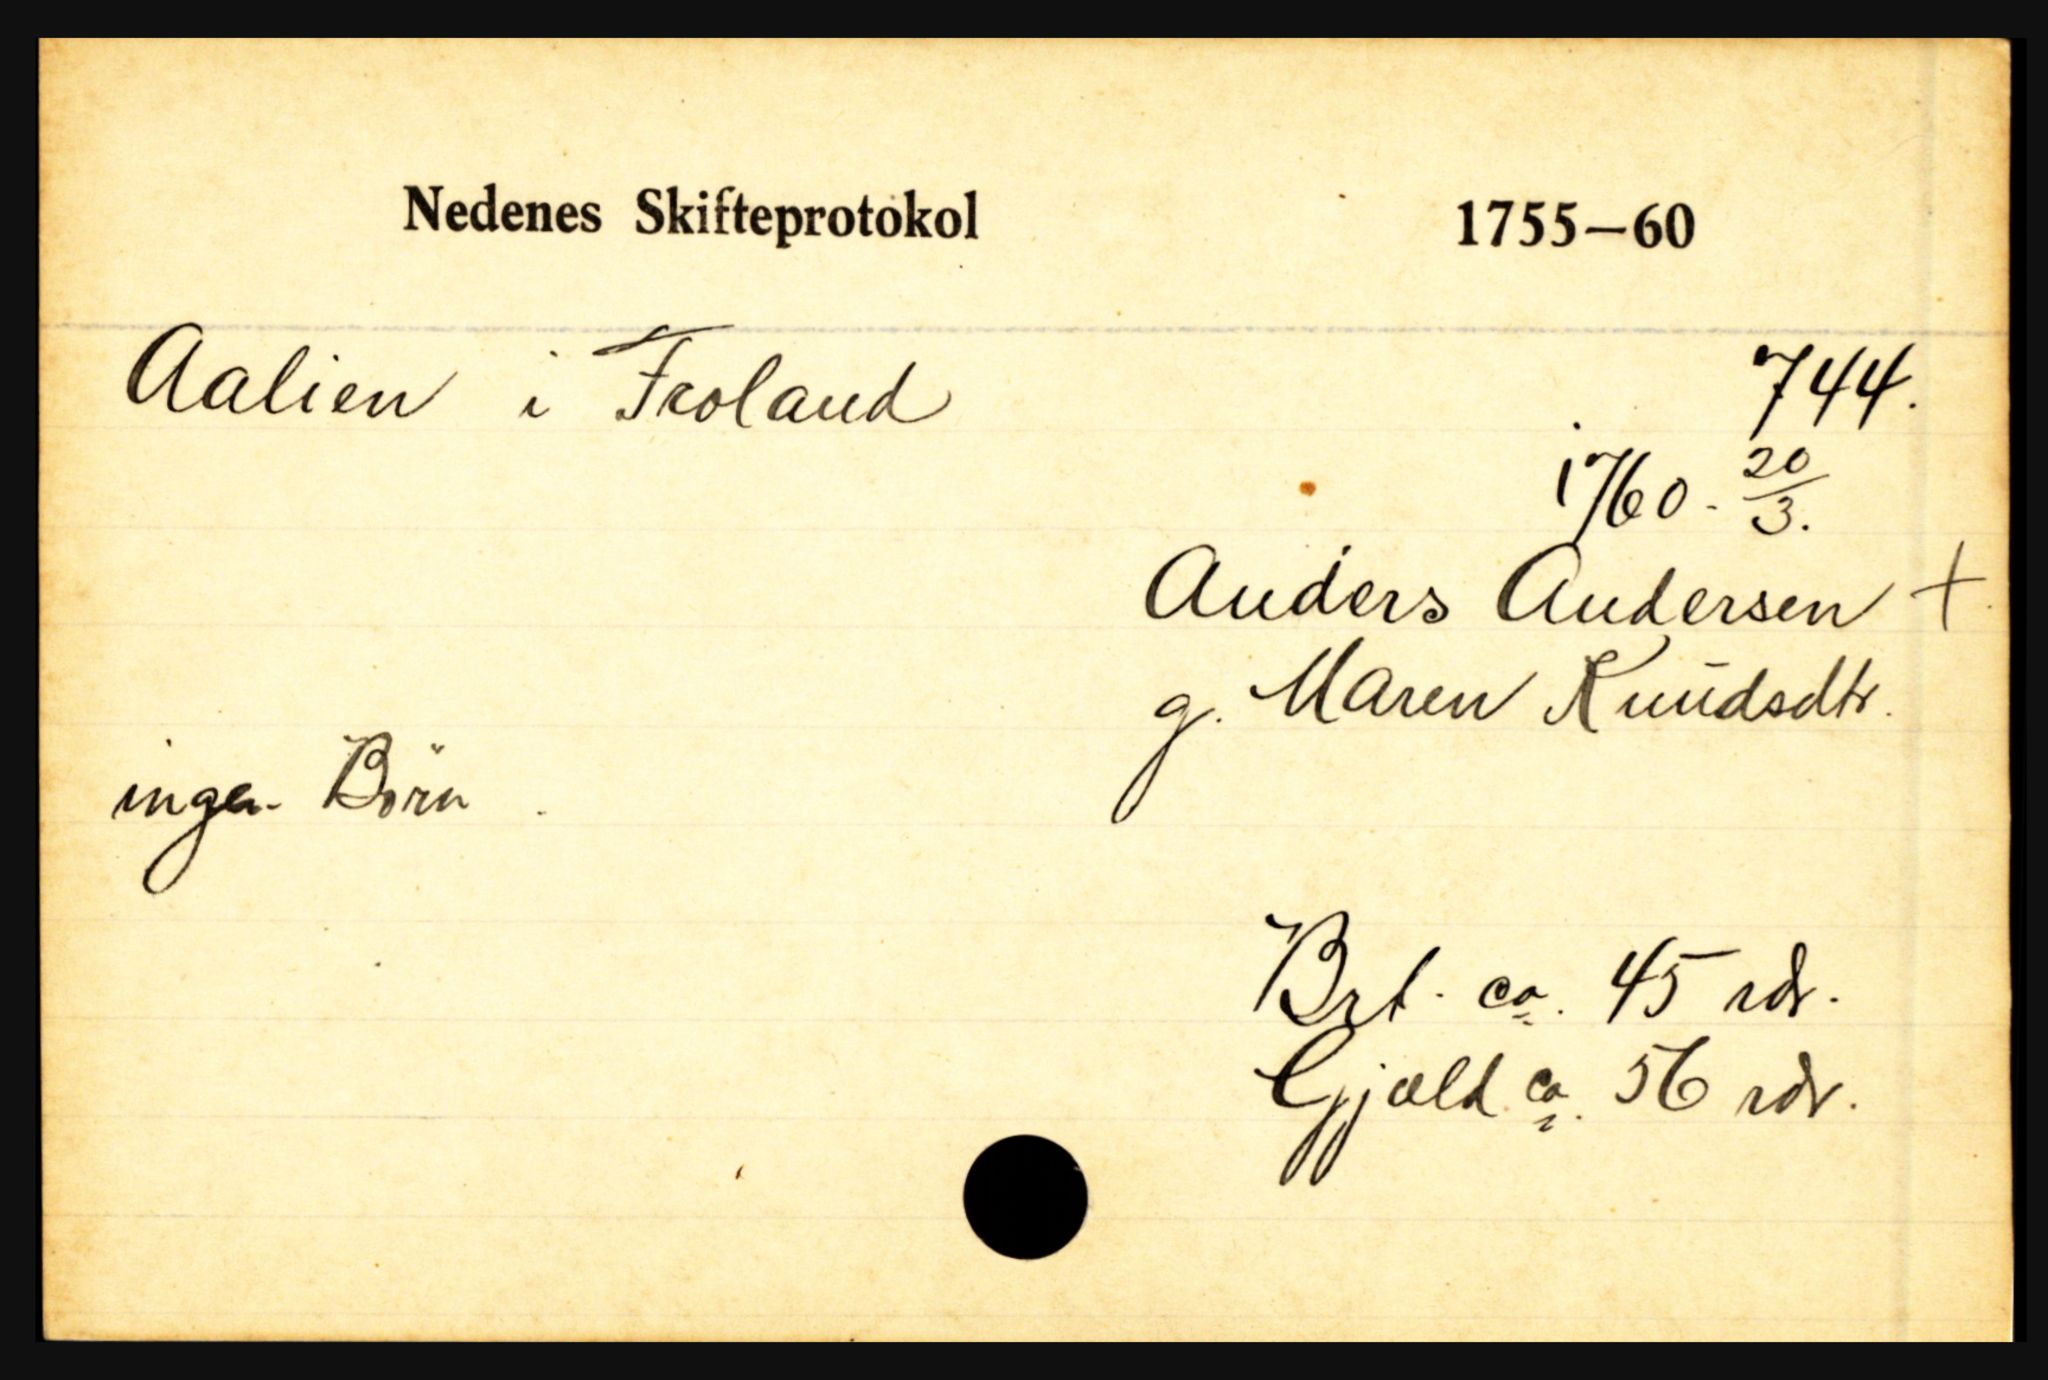 Nedenes Skifteprotokol 1755—60
Aalien i Froland 744.
1760. 20/3.
Anders Andersen +
g. Maren Knudsdtr.
ingen Börn
Brt. ca. 45 rdr.
Gjæld ca. 56 rdr.